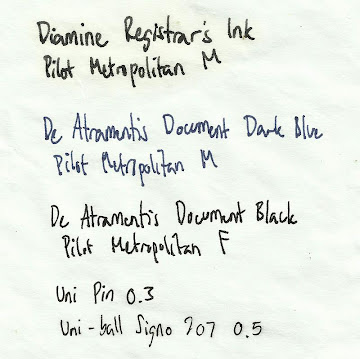 Diamine Registrar's Ink
Pilot Metropolitan M
De Atramentis Document Dark Blue
Pilot Metropolitan M
De Atramentis Document Black
Pilot Metropolitan F
Uni Pin 0.3
Uni-ball Signo 207 0.5